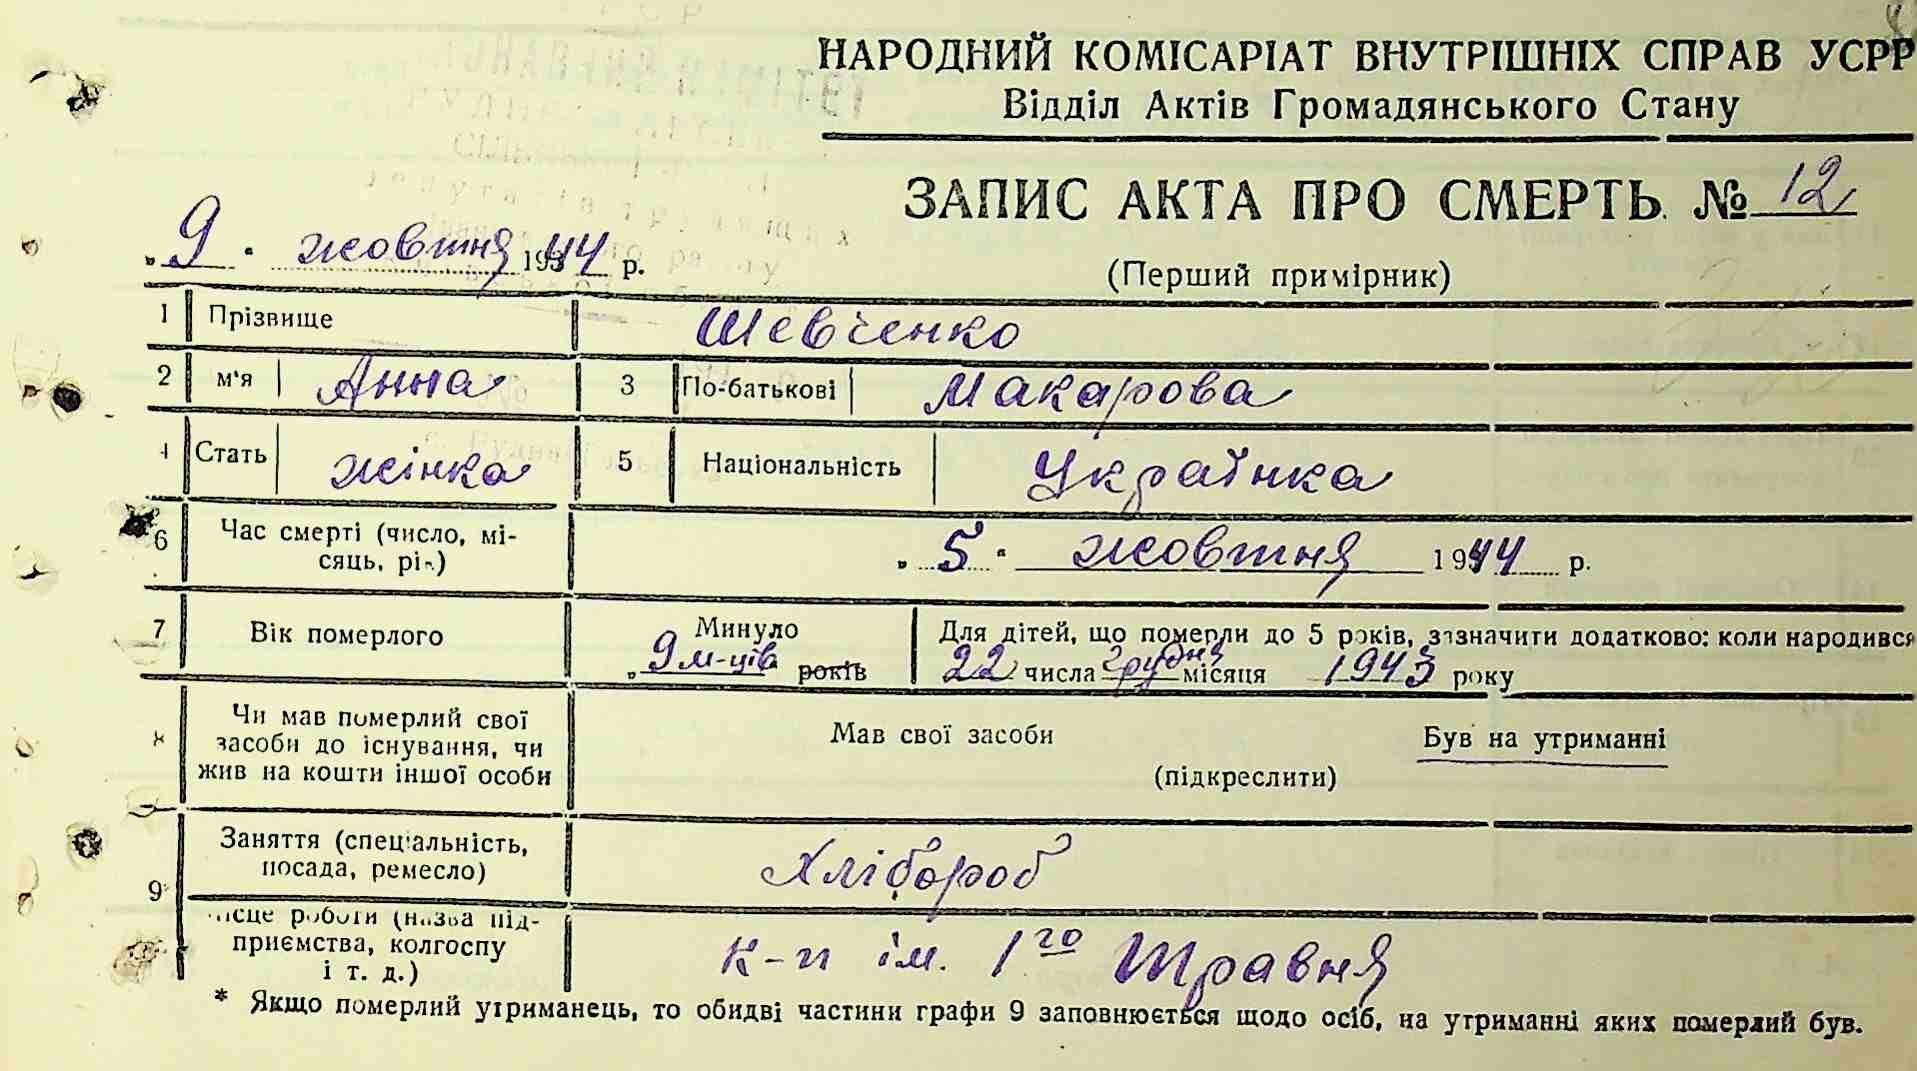 НАРОДНИЙ КОМІСАРІАТ ВНУТРІШНІХ СПРАВ УСРР
Відділ Актів Громадянського Стану
ЗАПИС АКТА ПРО СМЕРТЬ № 12
„ 9 " жовтня 1944 р.
(Перший примірник)
1 Прізвище Шевченко
2 м'я Анна 3 По-батькові Макарова
4 Стать жінка 5 Національність Українка
6 Час смерті (число, мі-
сяць, рік) „ 5 " жовтня 1944 р.
7 Вік померлого Минуло Для дітей, що померли до 5 років, зазначити додатково: коли народився
„ 9 м-ців років 22 числа грудня місяця 1943 року
Чи мав померлий свої
засоби до існування, чи
жив на кошти іншої особи
Мав свої засоби Був на утриманні
(підкреслити)
9 Заняття (спеціальність,
посада, ремесло) Хлібороб
місце роботи (назва під-
приємства, колгоспу
і т. д.) к-п ім. 1го Травня
* Якщо померлий утриманець, то обидві частини графи 9 заповнюється щодо осіб, на утриманні яких померлий був.